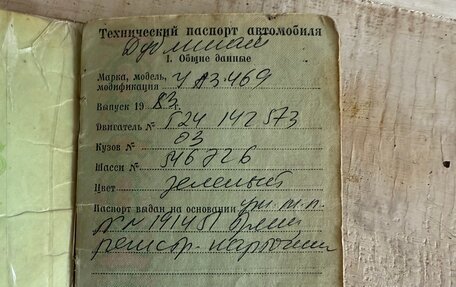 Технический паспорт автомобиля
Дубликат
1. Общие данные
Марка, модель,
модификация УАЗ 469
Выпуск 19 83 г.
Двигатель № 524 142573
Кузов № 03
Шасси № 546726
Цвет зеленый
Паспорт выдан на основании
№ 141451
регистр. карточки